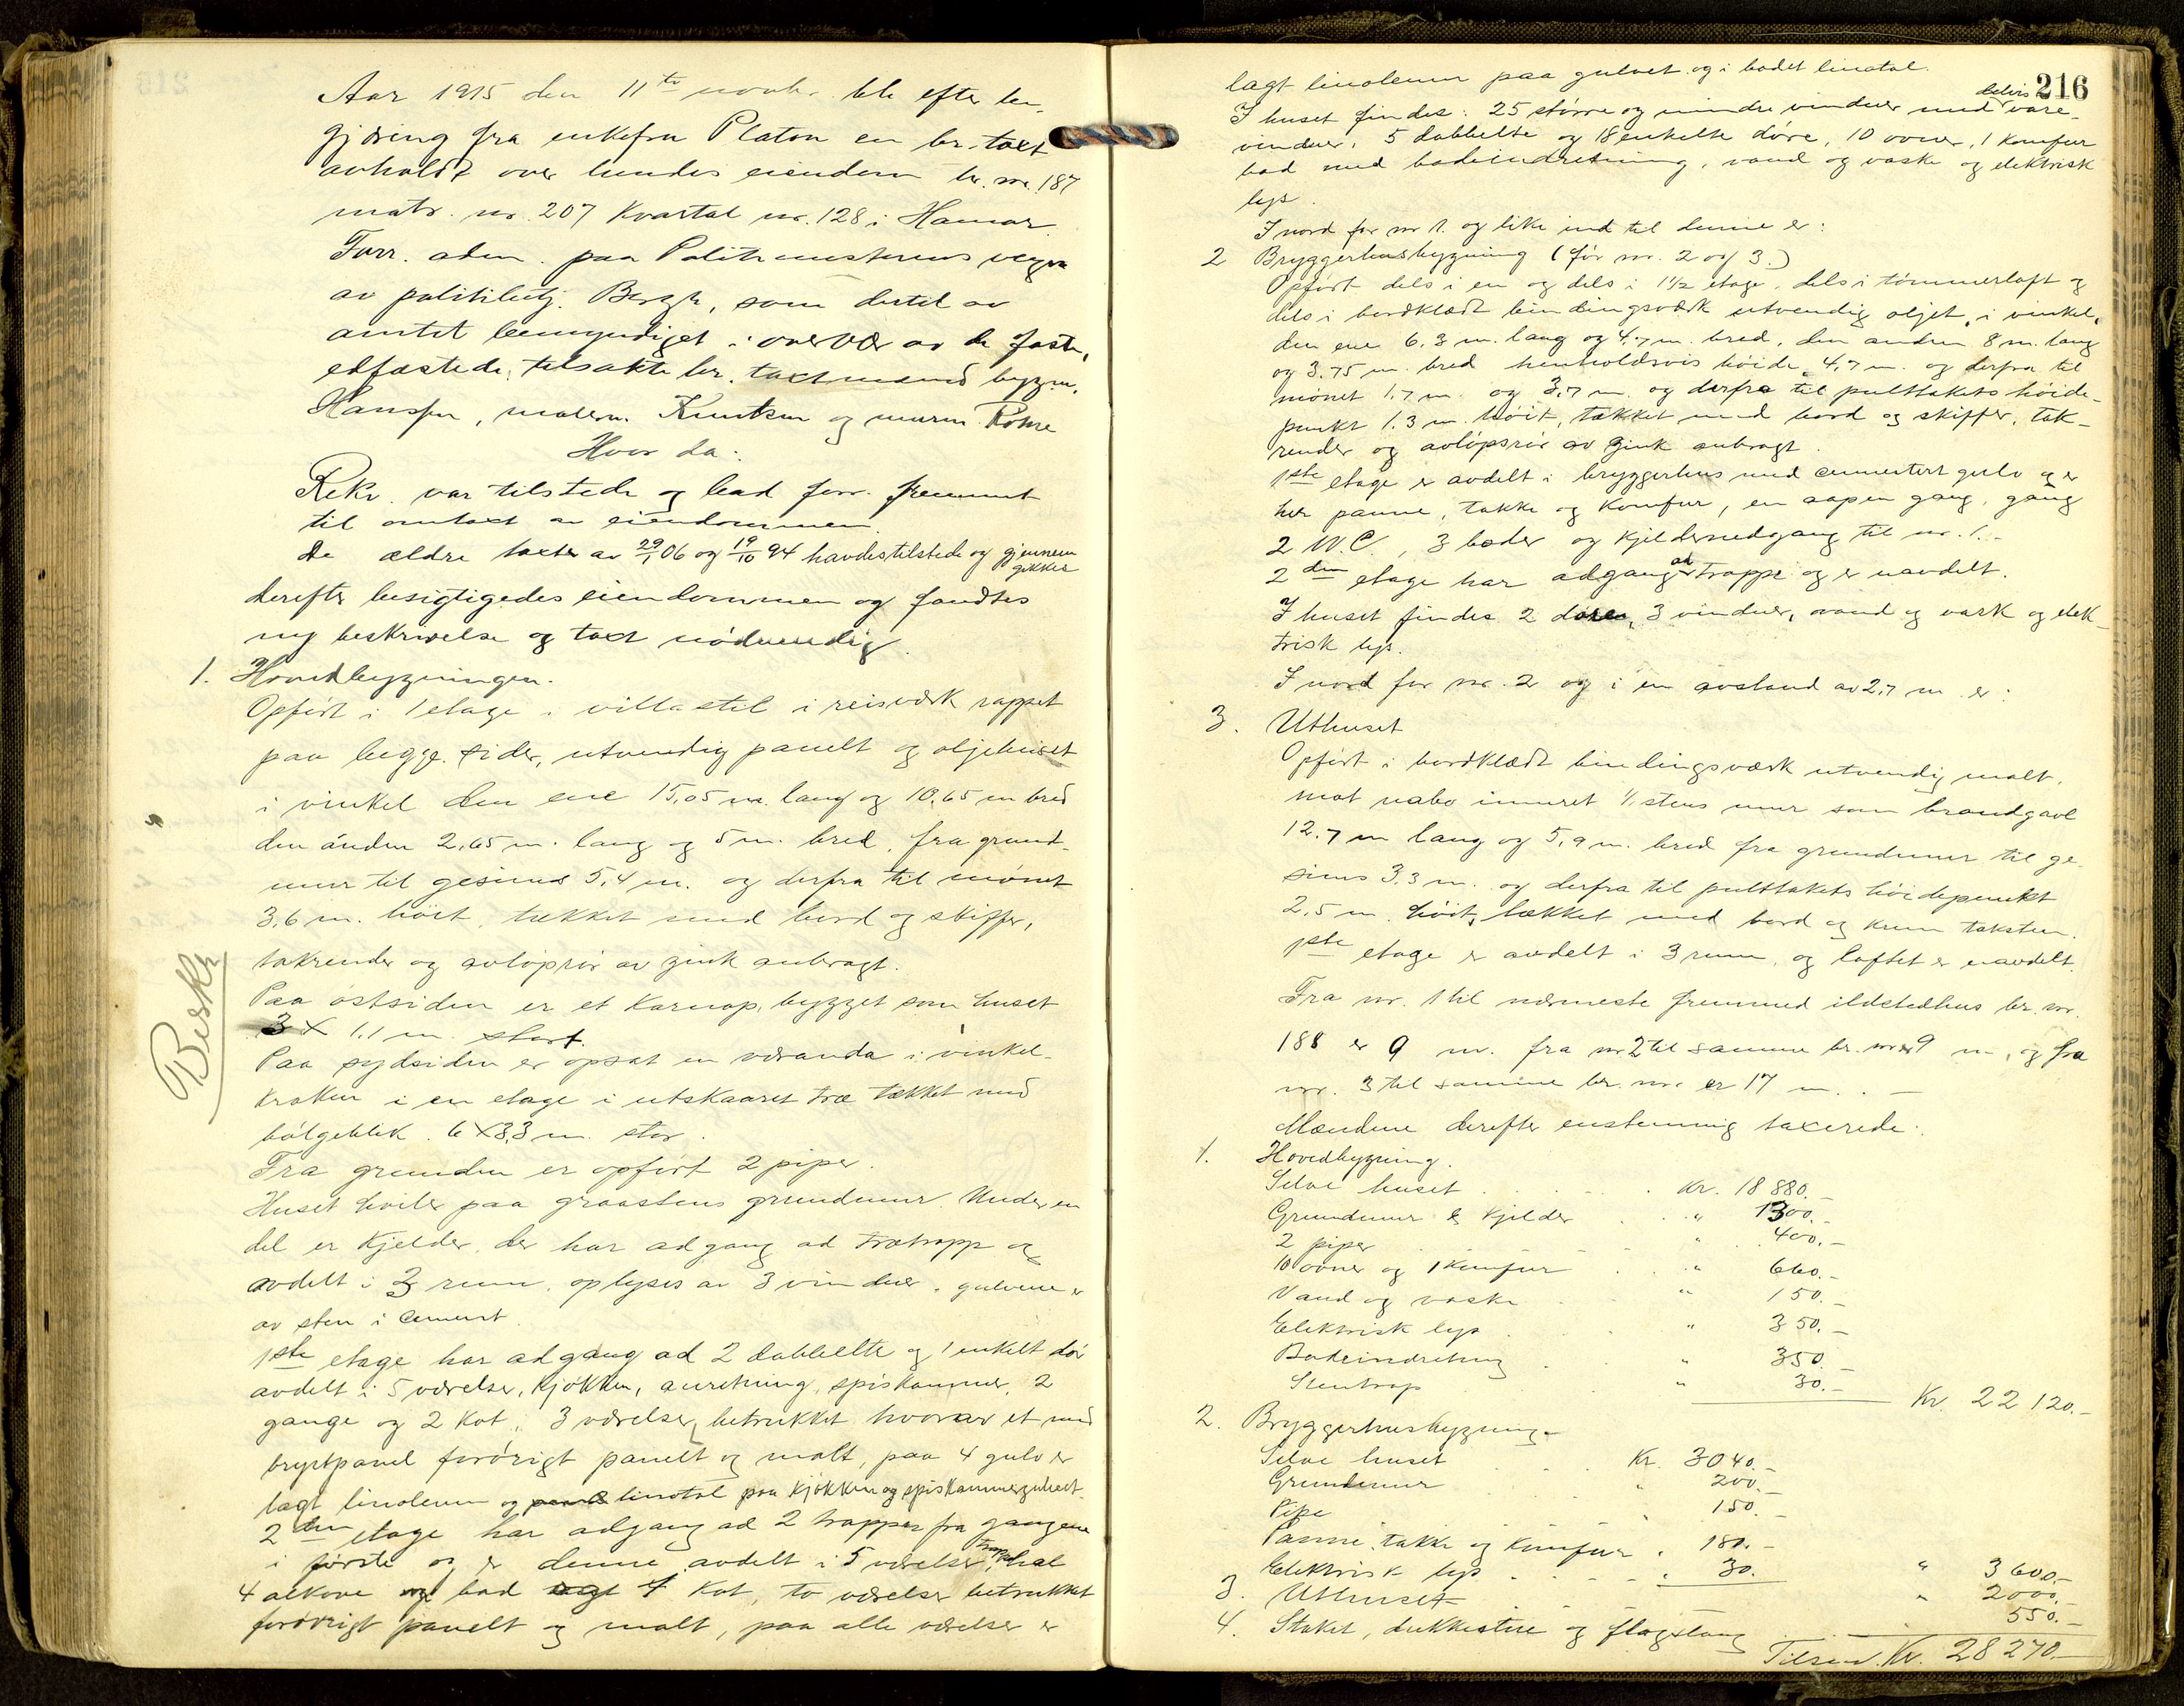 Aar 1915 den 11te novbr. ble efter be-
gjæring fra enkefru Platon en br. taxt
avholdt over hendes eiendom br. nr. 187
matr. nr. 207 Kvartal nr. 128 i Hamar.
Forr. adm. paa Politimesterens vegne
av politibetj. Bergh, som dertil av
amtet bemyndiget i overvær av de faste,
edfæstede, tilsakte br. taxtmænd bygm.
Hanssen, malerm. Knutsen og murm. Rohne
Hvor da:
Rekv. var tilstede og bad forr. fremmet
til omtaxt av eiendommen.
De ældre taxter av 29/1 06 og 19/10 94 havdes tilstede og gjennem
gikkes
derefter besigtigedes eiendommen og fandtes
ny beskrivelse og taxt nødvendig.
1. Hovedbygningen.
Opført i 1 etage i villastil i reisverk rappet
paa begge sider, utvendig panelt og oljebeiset
i vinkel den ene 15,05 m. lang og 10,65 m bred
den anden 2,65 m. lang og 5 m. bred, fra grund-
mur til gesims 5,4 m. og derfra til mønet
3,6 m. høit, tækket med bord og skiffer,
takrender og avløpsrør av zink anbragt.
Paa østsiden er et Karnap, bygget som huset
3 X 1,1 m. stort.
Paa sydsiden er opsat en veranda i vinkel-
kroken i en etage i utskaaret træ tækket med
bølgeblik. 6 X 3,3 m. stor.
Fra grunden er opført 2 piper.
Huset hviler paa graastens grundmur. Under en
del er Kjelder, der har adgang ad trætrapp og
avdelt i 3 rum, oplyses av 3 vinduer, gulvene er
av sten i cement.
1ste etage har adgang ad 2 dobbelte og 1 enkelt dør
avdelt i 5 værelser, kjøkken, anretning, spiskammer, 2
gange og 2 Kot, 3 værelser, betrukket hvorav et med
brystpanel forøvrigt panelt og malt, paa 4 gulv er
lagt linoleum og linotol paa Kjøkken og spiskammergulvet.
2den etage har adgang ad 2 trapper fra gangene
i første og er denne avdelt i 5 værelser, trappehal
4 alkove og bad 4 Kot, to værelser betrukket
forøvrigt panelt og malt, paa alle værelser er
Beskr
216
lagt linoleum paa gulvet og i badet linotol.
delvis
I huset findes: 25 større og mindre vinduer med vare-
vinduer, 5 dobbelte og 18 enkelte døre, 10 ovner, 1 komfur
bad med badeindretning, vand og vaske og elektrisk
lys.
I nord for nr 1. og like ind til denne er:
2 Bryggerhusbygning (før nr. 2 og 3.)
Opført dels i en og dels i 1½ etage, dels i tømmerloft og
dels i bordklædt bindingsverk utvendig oljet, i vinkel,
den ene 6,3 m. lang og 4,7 m. bred, den anden 8 m. lang
og 3.75 m. bred henholdsvis høide 4,7 m. og derfra til
mønet 1,7 m. og 3,7 m. og derfra til pulttakets høide-
punkt 1.3 m. høit, tækket med bord og skiffer, tak-
render og avløpsrør av zink anbragt.
1ste etage er avdelt i bryggerhus med cementert gulv og er
her panne, takke og Komfur, en aapen gang, gang
2 W.C., 3 boder og Kjeldernedgang til nr. 1.-
2den etage har adgang ad trappe og er uavdelt.
I huset findes 2 døre, 3 vinduer, vand og vask og elek-
trisk lys.
I nord for nr. 2 og i en avstand av 2,7 m er:
3. Uthuset
Opført i bordklædt bindingsværk utvendig malt.
mot nabo inmuret 1/1 stens mur som brandgavl
12.7 m lang og 5,9 m. bred fra grundmur til ge-
sims 3,3 m. og derfra til pulttakets høidepunkt
2,5 m. høit, tækket med bord og krum taksten.
1ste etage er avdelt i 3 rum, og loftet er uavdelt.
Fra nr. 1 til nærmeste fremmed ildstedhus br. nr.
188 er 9 m. fra nr 2 til samme br. nr er 9 m., og fra
nr. 3 til samme br. nr. er 17 m. . —
Mændene derefter enstemmig taxerede:
1. Hovedbygning.
Selve huset Kr. 18 880.-
Grundmur & Kjelder " 1300.-
2 piper " 400.-
10 ovner og 1 Komfur " 660.-
Vand og vaske " 150.-
Elektrisk lys " 350.-
Badeindretning " 350.-
Stentrap " 30.-
Kr. 22 120.-
2. Bryggerhusbygning.
Selve huset Kr. 3040.-
Grundmur " 200.-
Pipe " 150.-
Panne, takke og Komfur " 180.-
Elektrisk lys " 30.
" 3 600.-
3. Uthuset " 2000.-
4. Staket, dukkestue og flagstang 550.-
Tilsam. Kr. 28 270.-